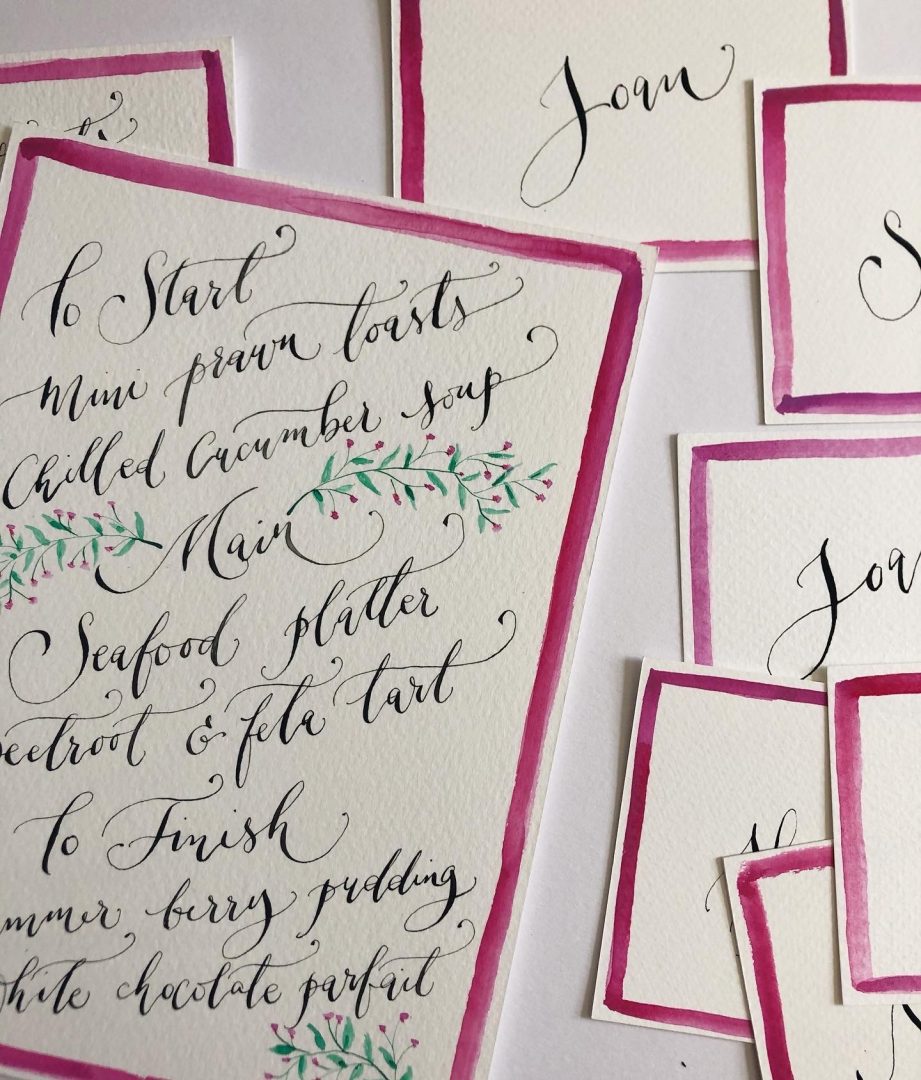 To Start
Mini prawn toasts
Chilled Cucumber soup
Main
Seafood platter
beetroot & feta tart
To Finish
ummer berry pudding
white chocolate parfait
Joan
S
Joa